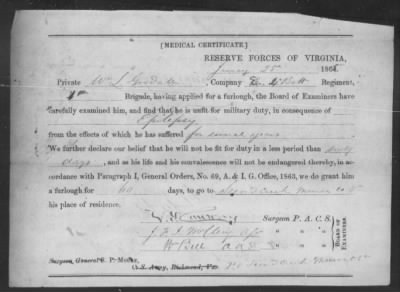 [MEDICAL CERTIFICATE.]
RESERVE FORCES OF VIRGINIA,
25 186
Private Wm Company Batt Regiment,
Brigade, having applied for a furlough, the Board of Examiners have
carefully examined him, and find that he is unfit for military duty, in consequence of
Epilepsy
from the effects of which he has suffered for several years
We further declare our belief that he will not be fit for duty in a less period than sixty
days, and as his life and his convalescence will not be endangered thereby, in
accordance with Paragraph I, General Orders, No. 69, A. & I. G. Office, 1863, we do grant
him a furlough for 60 days, to go to
his place of residence.
Surgeon P. A. C. S.
" " "
" " "
BOARD OF EXAMINERS.
Surgeon General S. P. Moore,
C. S. Army, Richmond, Va.